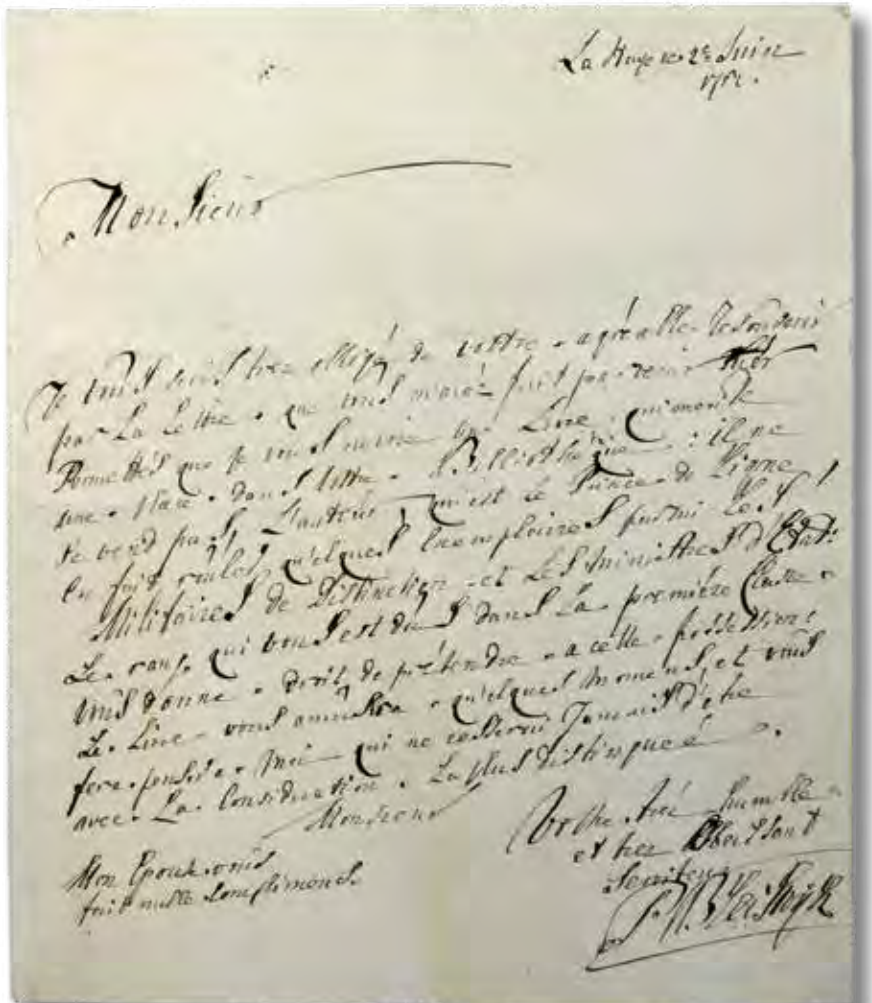 La Haye le 2e Juin
Monsieur
Je vous suis tres obligé de votre agréable Souvenir
par La Lettre que vous m'avéz fait parvenir
Permettés que je vous envoie un Livre qui merite
une place dans votre Bibliothéque : il ne
se vend pas L'auteur qui est Le Prince de Ligne
en fait quelques Exemplaires parmi Les
Militaires de Distinction et Les Ministres d'Etat:
Le rang qui vous est dû dans La première Classe
vous donne droit de prétendre a cette possession:
Le Livre vous amusera quelques momens, et vous
fera penser a Moi qui ne cesserai Jamais d'étre
avec La Consideration La plus distinguée
Monsieur
Votre très humble
et tres Obeissant
Serviteur
Mon Epouse vous
fait mille Complimens